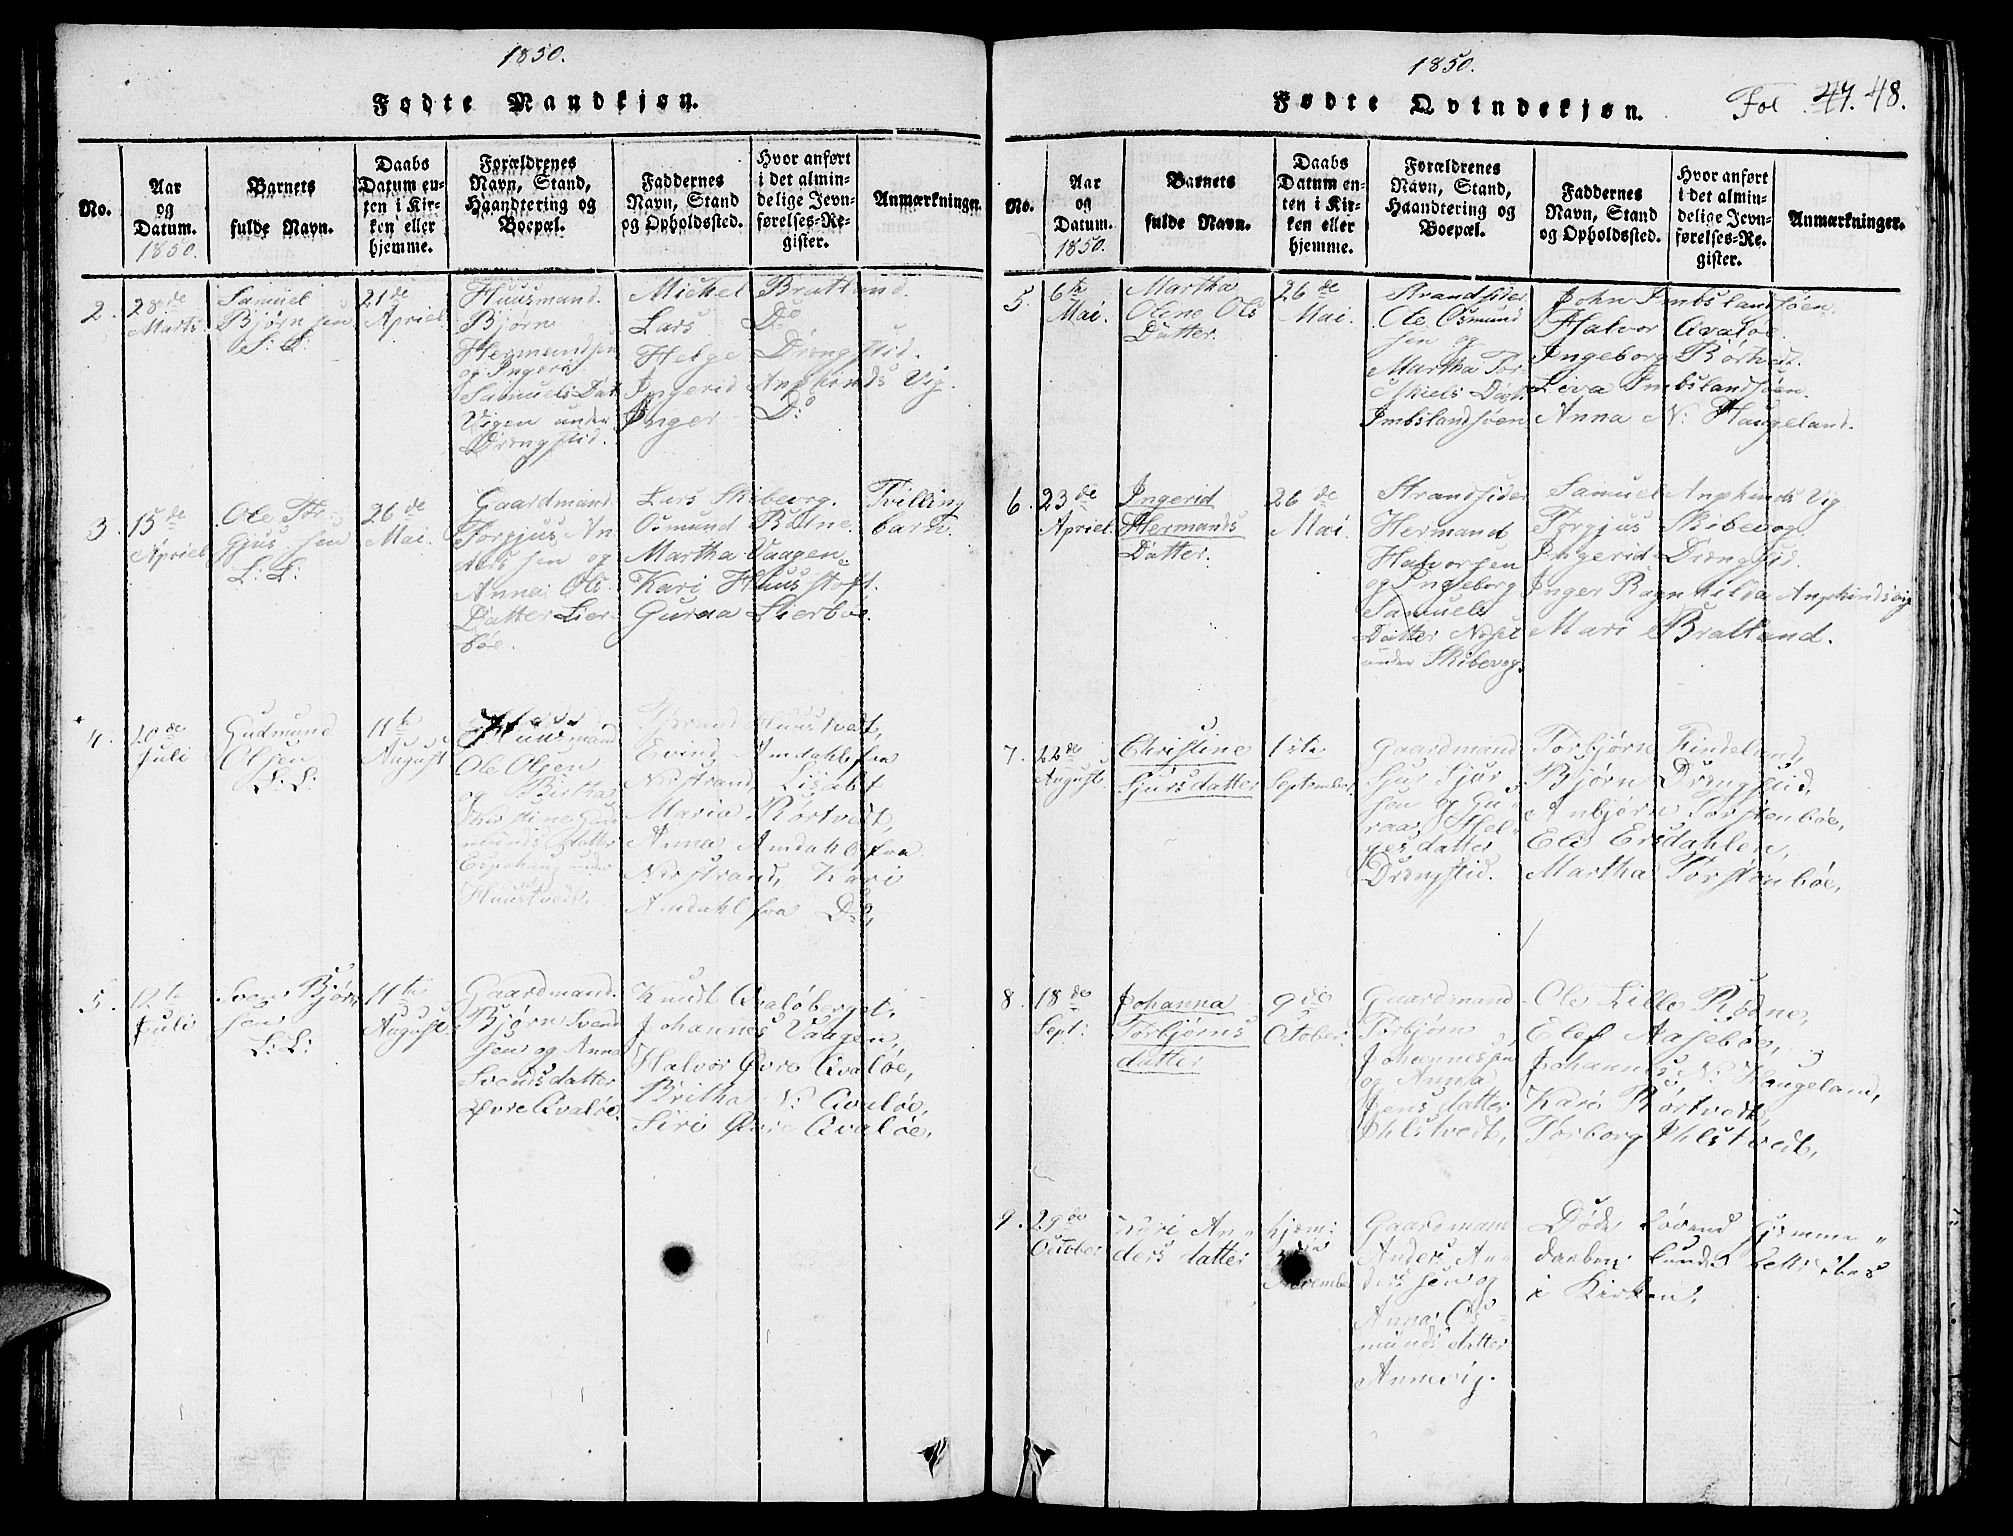 1850.
Fødte Mandkjøn.
No.
Aar og Datum. 1850.
Barnets fulde Navn.
Daabs Datum enten i Kirken eller hjemme.
Forældrenes Navn, Stand, Haandtering og Boepæl.
Faddernes Navn, Stand og Opholdssted.
Hvor anført i det almindelige Jevnførelses-Register.
Anmærkninger.
2.
28de
Marts
Samuel
Bjørnsen
L: L:
21de
Apriel
Huusmand.
Bjørn
Hermundsen
og Ingeri
Samuels Dat
Vigen under
Drengstid.
Michel Bratland.
Lars Do
Helge Drengstid.
Ingerid Anphinds Vig.
Inger Do
3.
15de
Apriel
Ole Tor-
gjussen
L: L:
26de
Mai.
Gaardmand
Torgjus An
ders sen og
Anna Ols
Datter Lier-
bøe.
Lars Skibevog.
Osmund Rødne.
Martha Vaagen
Kari Huustoft.
Guraa Lierbøe.
Tvilling
barn.
4.
20de
Juli
Gudmund
Olsen
L: L:
11te
August
Huusmand
Ole Olsen
og Birtha
Christine Gud
munds datter
under
Huustvedt.
Tjerand Huustvedt,
Evind Amdahl fra
Nærstrand, Lisabt
Maria Rørtvedt,
Anna Amdahl fra
Nærstrand, Kari
Amdahl fra Do,
5.
12te
Juli
Sven Bjørn
sen
L: L:
11te
August.
Gaardmand.
Bjørn Svend
sen og Anna
Svendsdatter
Øvre Qvaløe.
Knud Qvaløberget.
Johannes Vaagen,
Halvor Øvre Qvaløe,
Britha N: Qvaløe,
Siri Øvre Qvaløe,
1850.
Fødte Qvindekjøn.
Fol. 47. 48.
No.
Aar og Datum. 1850.
Barnets fulde Navn.
Daabs Datum enten i Kirken eller hjemme.
Forældrenes Navn, Stand, Haandtering og Boepæl.
Faddernes Navn, Stand og Opholdssted.
Hvor anført i det almindelige Jevnførelses-Re. gister.
Anmærkninger.
5.
6te
Mai.
Martha
Oline Ols
Datter.
26de
Mai.
Strandsider
Ole Osmund
sen og
Martha Tor
skiels Datt
Imbslandsøen
John Imbslandsøen.
Halvor Qvaløe.
Ingeborg Rørtvedt.
Leva Imbslandsøen.
Anna N: Haugeland.
6.
23de
Apriel.
Ingerid
Hermands
Datter.
26de
Mai.
Strandsider
Hermand
Halvorsen
og Ingeborg
Samuels
Datter Neset
under Skibevog.
Samuel Anphinds Vig
Torgjus Skibevog
Ingerid Drengstid.
Inger Ragnhilda Anphindsvig
Mari Bratland.
7.
22de
August
Christine
Sjursdatter
1ste
September.
Gaardmand
Sjur Sjur
sen og Gu-
raa, Hel-
ges datter
Drengstid.
Torbjørn Findeland,
Bjørn Drengstid,
Anbjørn Torstenbøe,
Eli Ersdahlen,
Martha Torstenbøe,
8.
18de
Sept:
Johanna
Torbjørns
datter
9de
October.
Gaardmand
Torbjørn
Johannessen
og Anna
Jens datter
Ihlstvedt,
Ole Lille Rødne,
Elef Aasebøe,
Johannes N: Haugeland,
Kari Rørtvedt,
Torborg Ihlstvedt,
9.
29de
October
Kari An-
ders datter
hjem:
November
Gaardmand
Anders An-
derssen og
Anna Os-
munds datter
Annevig.
Døde
i Kirken.